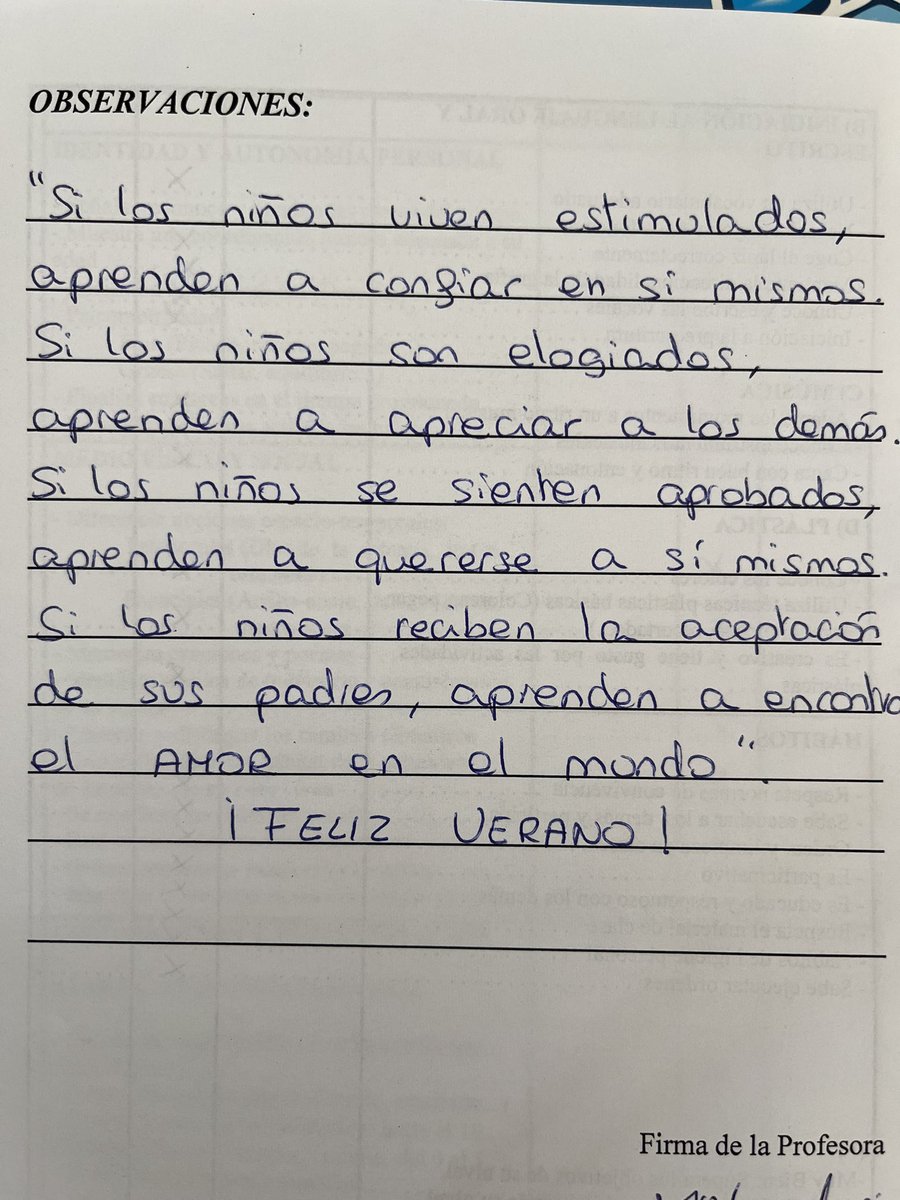 OBSERVACIONES:
"Si los niños viven estimulados,
aprenden a confiar en si mismos.
Si los niños son elogiados,
aprenden a apreciar a los demás.
Si los niños se sienten aprobados,
aprenden a quererse a sí mismos.
Si los niños reciben la aceptación
de sus padres, aprenden a encontra
el AMOR en el mundo".
¡FELIZ VERANO!
Firma de la Profesora